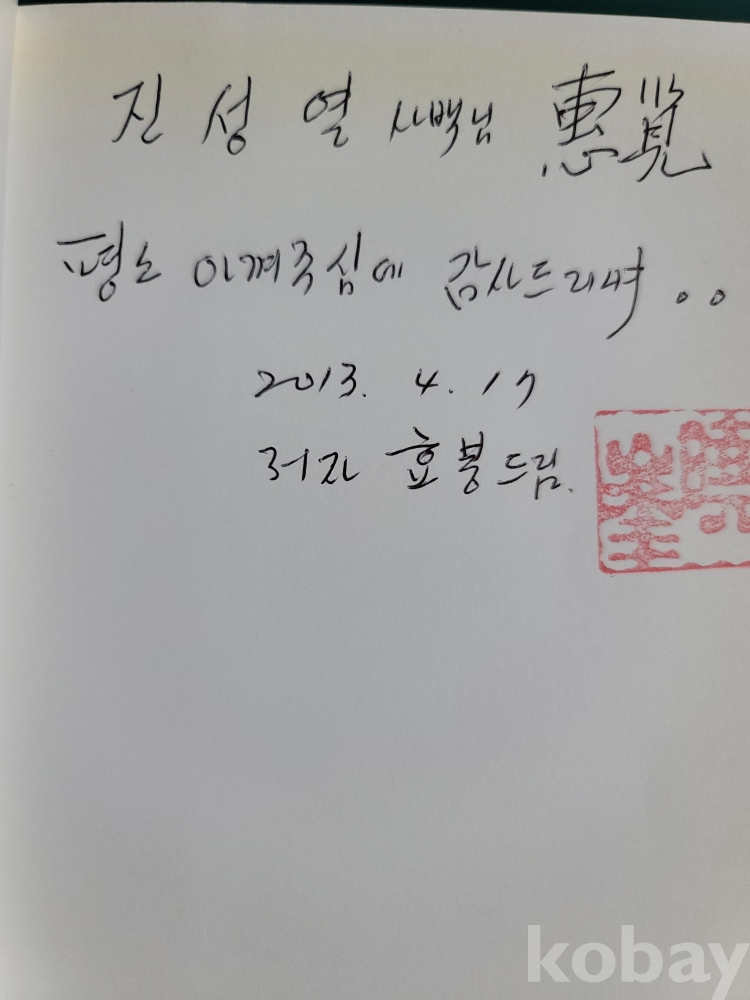 진성열 사백님 惠覧
평소 아껴주심에 감사드리며..
2013. 4. 17
저자 효봉 드림.
kobay